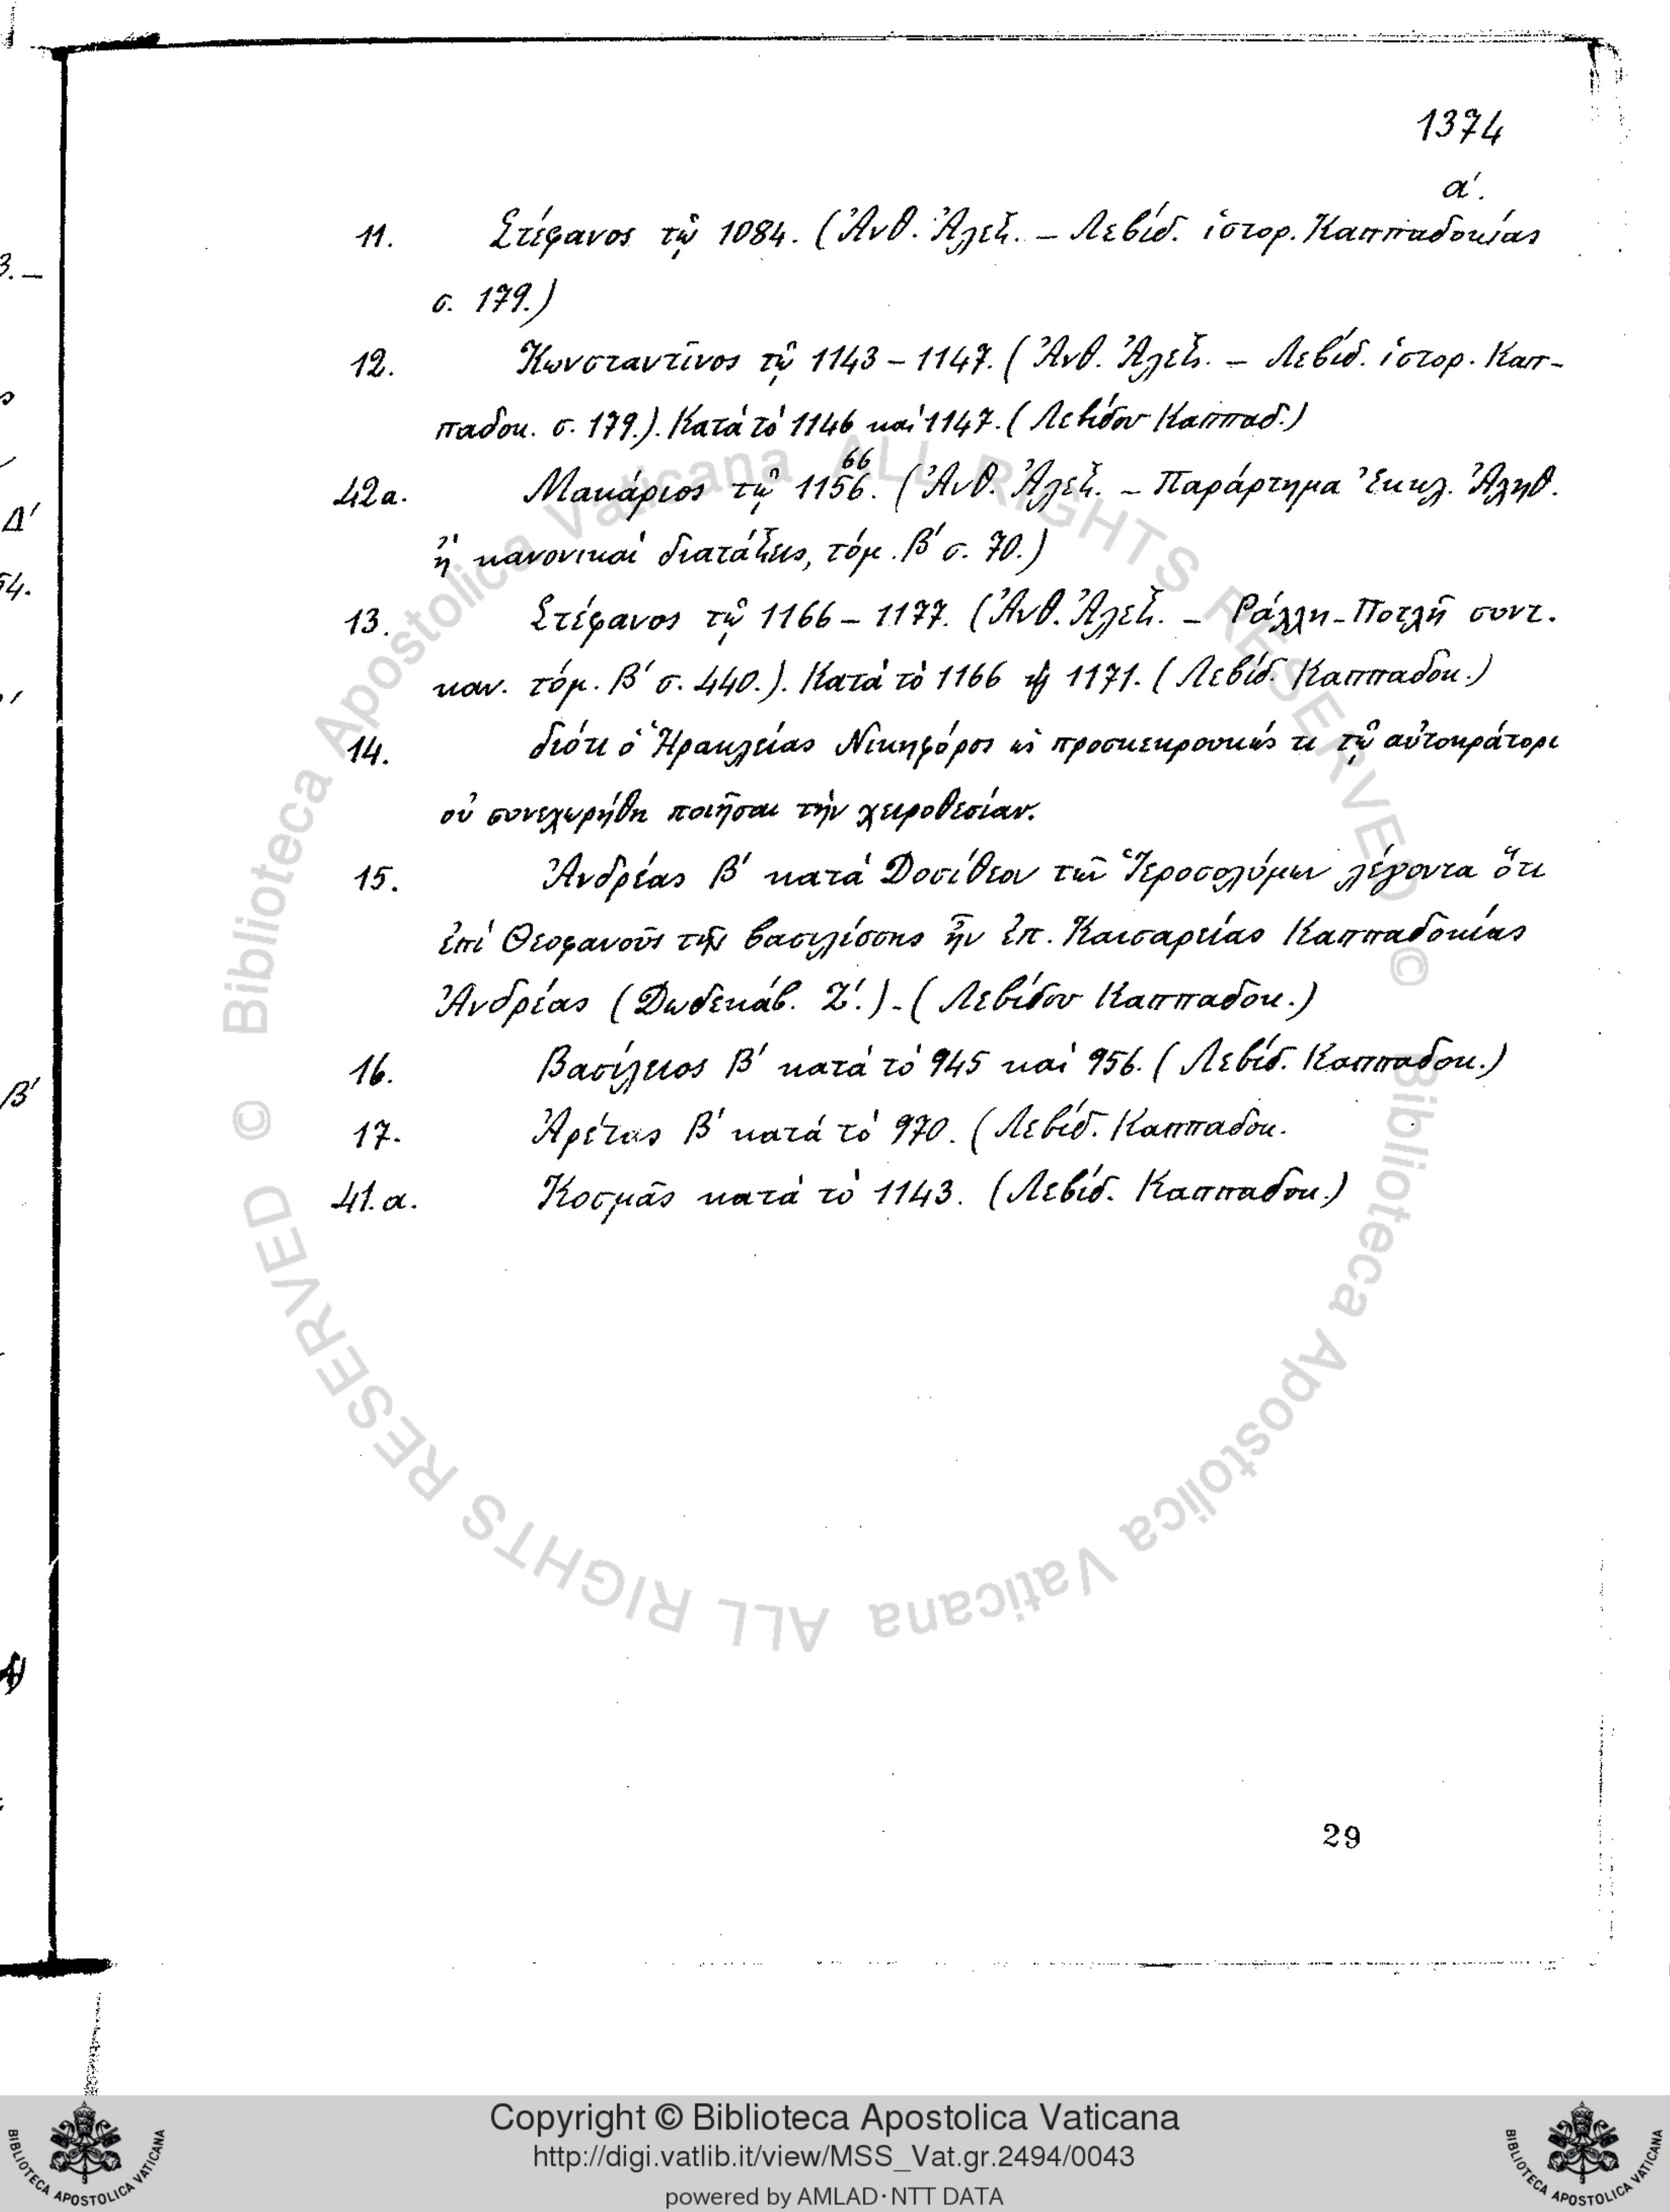 1374
α΄.
11. Στέφανος τῷ 1084. (Ἀνθ. Ἀλεξ. – Λεβίδ. ἱστορ. Καππαδοκίας
σ. 179.)
12. Κωνσταντῖνος τῷ 1143 – 1147. (Ἀνθ. Ἀλεξ. – Λεβίδ. ἱστορ. Καπ-
παδοκ. σ. 179.). Κατὰ τὸ 1146 καὶ 1147. (Λεβίδου Καππαδ.)
66
42α. Μακάριος τῷ 1156. (Ἀνθ. Ἀλεξ. – Παράρτημα Ἐκκλ. Ἀληθ.
ἢ κανονικαὶ διατάξεις, τόμ. Β΄ σ. 70.)
13. Στέφανος τῷ 1166 – 1177. (Ἀνθ. Ἀλεξ. – Ράλλη – Ποτλῆ συντ.
καν. τόμ. Β΄ σ. 440.). Κατὰ τὸ 1166 ϗ 1171. (Λεβίδ. Καππαδοκ.)
14. διότι ὁ Ἡρακλείας Νικηφόρος ὡς προσκεκρουκώς τι τῷ αὐτοκράτορι
οὐ συνεχωρήθη ποιῆσαι τὴν χειροθεσίαν.
15. Ἀνδρέας Β΄ κατὰ Δοσίθεον τῶν Ἱεροσολύμων λέγοντα ὅτι
ἐπὶ Θεοφανοῦς τῆς βασιλίσσης ἦν ἐπ. Καισαρείας Καππαδοκίας
Ἀνδρέας (Δωδεκάβ. Ζ΄.) – (Λεβίδου Καππαδοκ.)
16. Βασίλειος Β΄ κατὰ τὸ 945 καὶ 956. (Λεβίδ. Καππαδοκ.)
17. Ἀρέτας Β΄ κατὰ τὸ 970. (Λεβίδ. Καππαδοκ.
41.α. Κοσμᾶς κατὰ τὸ 1143. (Λεβίδ. Καππαδοκ.)
29
© Biblioteca Apostolica Vaticana ALL RIGHTS RESERVED © Biblioteca Apostolica Vaticana ALL RIGHTS RESERVED
Copyright © Biblioteca Apostolica Vaticana
http://digi.vatlib.it/view/MSS_Vat.gr.2494/0043
powered by AMLAD·NTT DATA
BIBLIOTECA APOSTOLICA VATICANA
BIBLIOTECA APOSTOLICA VATICANA